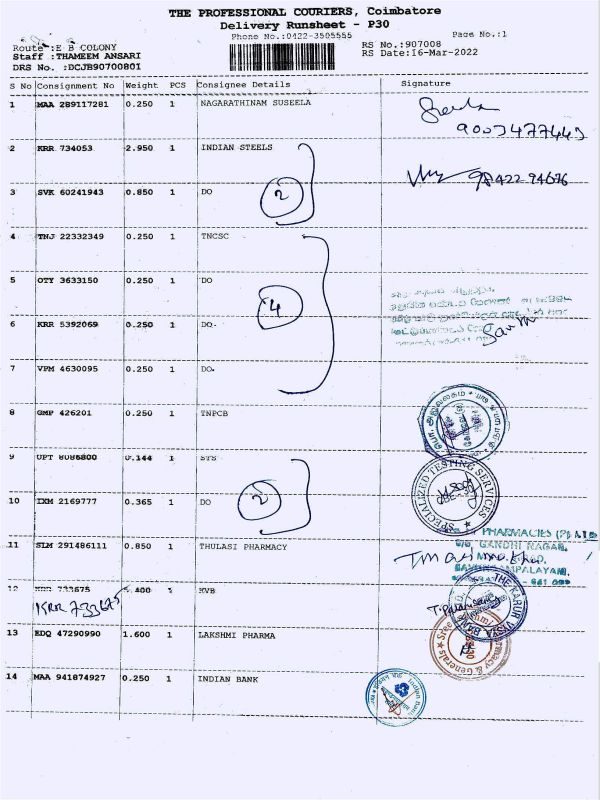 THE PROFESSIONAL COURIERS, Coimbatore
Delivery Runsheet - P30
Phone No.:0422-3505555
Page No.:1
Route :E B COLONY
RS No.:907008
Staff :THAMEEM ANSARI
RS Date:16-Mar-2022
DRS No. :DCJB90700801
S No Consignment No Weight PCS Consignee Details Signature
1 MAA 289117281 0.250 1 NAGARATHINAM SUSEELA
2 KRR 734053 2.950 1 INDIAN STEELS
3 SVK 60241943 0.850 1 DO
2
4 TNJ 22332349 0.250 1 TNCSC
5 OTY 3633150 0.250 1 DO
4
6 KRR 5392069 0.250 1 DO
7 VPM 4630095 0.250 1 DO
8 GMP 426201 0.250 1 TNPCB
9 UPT 8086800 0.144 1 STS
SPECIALIZED TESTING SERVICES
10 IXM 2169777 0.365 1 DO
2
PHARMACIES (P) LTD
GANDHI NAGAR,
11 SLM 291486111 0.850 1 THULASI PHARMACY
12 KRR 733675 .400 1 KVB
KRR 733675
THE KARUR VYSYA BANK
13 EDQ 47290990 1.600 1 LAKSHMI PHARMA
14 MAA 941874927 0.250 1 INDIAN BANK